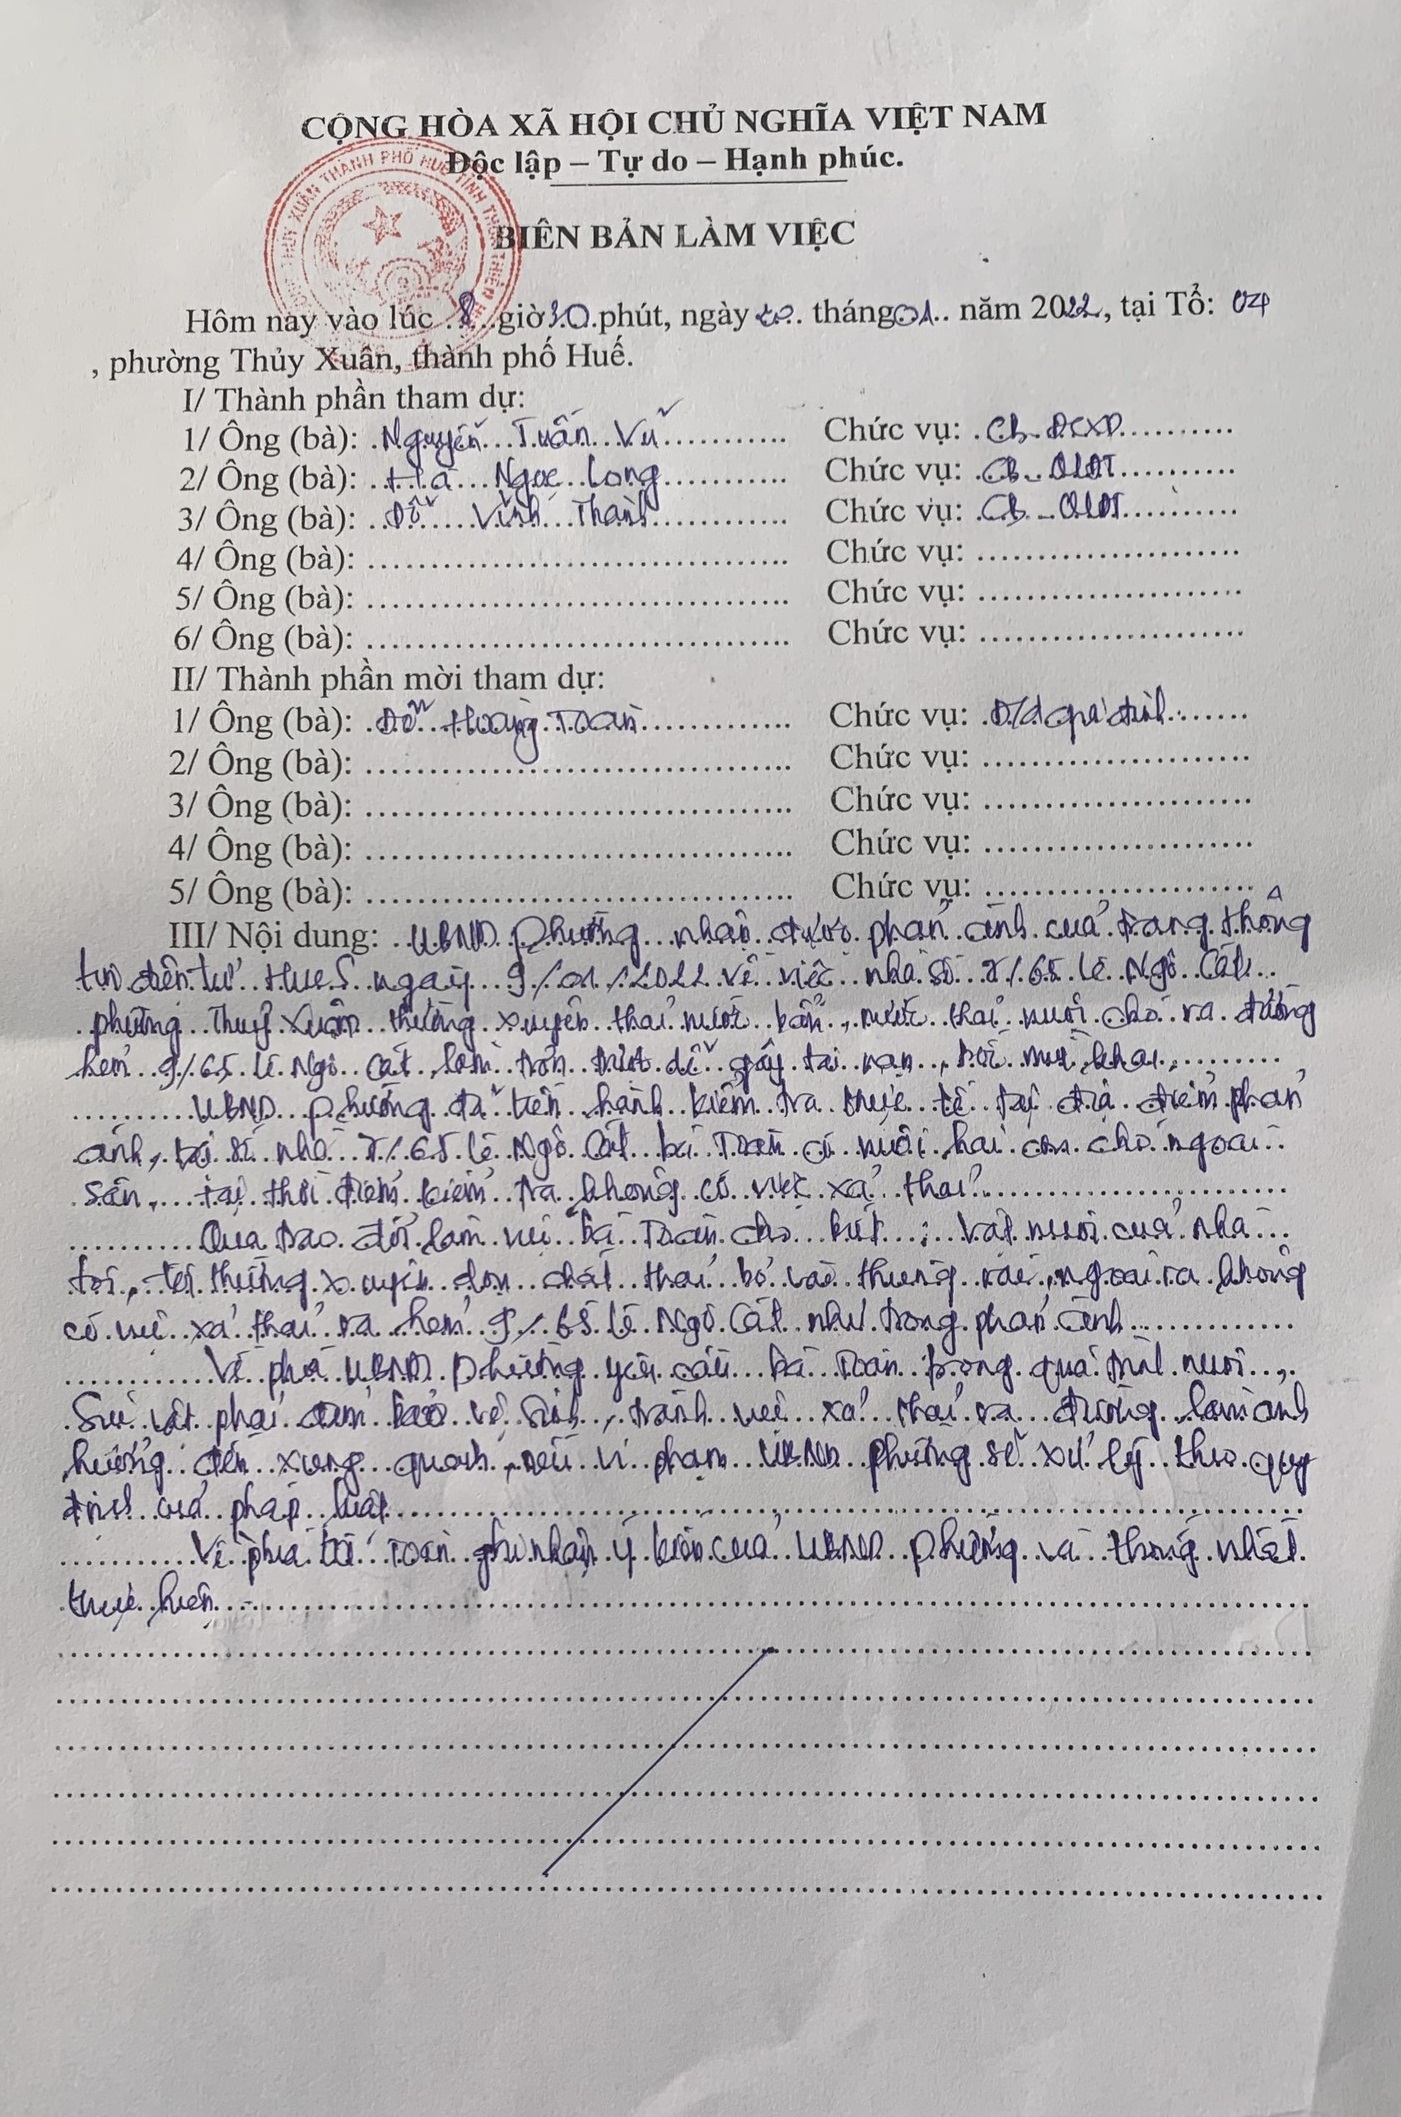 CỘNG HÒA XÃ HỘI CHỦ NGHĨA VIỆT NAM
Độc lập – Tự do – Hạnh phúc.
THỦY XUÂN THÀNH PHỐ HUẾ TỈNH THỪA THIÊN HUẾ
BIÊN BẢN LÀM VIỆC
Hôm nay vào lúc 8 giờ 30 phút, ngày 20 tháng 01 năm 2022, tại Tổ: 04
, phường Thủy Xuân, thành phố Huế.
I/ Thành phần tham dự:
1/ Ông (bà): Nguyễn Tuấn Vũ Chức vụ: CB. ĐCXD
2/ Ông (bà): Hà Ngọc Long Chức vụ: CB - QLĐT
3/ Ông (bà): Đỗ Vĩnh Thành Chức vụ: CB - QLĐT
4/ Ông (bà): Chức vụ:
5/ Ông (bà): Chức vụ:
6/ Ông (bà): Chức vụ:
II/ Thành phần mời tham dự:
1/ Ông (bà): Đỗ Hoàng Toàn Chức vụ: Đ/d gia đình
2/ Ông (bà): Chức vụ:
3/ Ông (bà): Chức vụ:
4/ Ông (bà): Chức vụ:
5/ Ông (bà): Chức vụ:
III/ Nội dung: UBND phường nhận được phản ánh của trang thông
tin điện tử HueS ngày 9/01/2022 về việc nhà số 7/65 Lê Ngô Cát
phường Thuỷ Xuân thường xuyên thải nước bẩn, nước thải nuôi chó ra đường
hẻm 9/65 Lê Ngô Cát, làm trơn trượt dễ gây tai nạn, bốc mùi khai,
UBND phường đã tiến hành kiểm tra thực tế tại địa điểm phản
ánh, tại số nhà 7/65 Lê Ngô Cát bà Toàn có nuôi hai con chó ngoài
sân, tại thời điểm kiểm tra không có việc xả thải.
Qua trao đổi làm việc bà Toàn cho biết: vật nuôi của nhà
tôi, tôi thường xuyên dọn chất thải bỏ vào thùng rác, ngoài ra không
có việc xả thải ra hẻm 9/65 Lê Ngô Cát như trong phản ánh
Về phía UBND phường yêu cầu bà Toàn trong quá trình nuôi,
súc vật phải đảm bảo vệ sinh, tránh việc xả thải ra đường, làm ảnh
hưởng đến xung quanh, nếu vi phạm UBND phường sẽ xử lý theo quy
định của pháp luật
Về phía bà Toàn ghi nhận ý kiến của UBND phường và thống nhất
thực hiện.